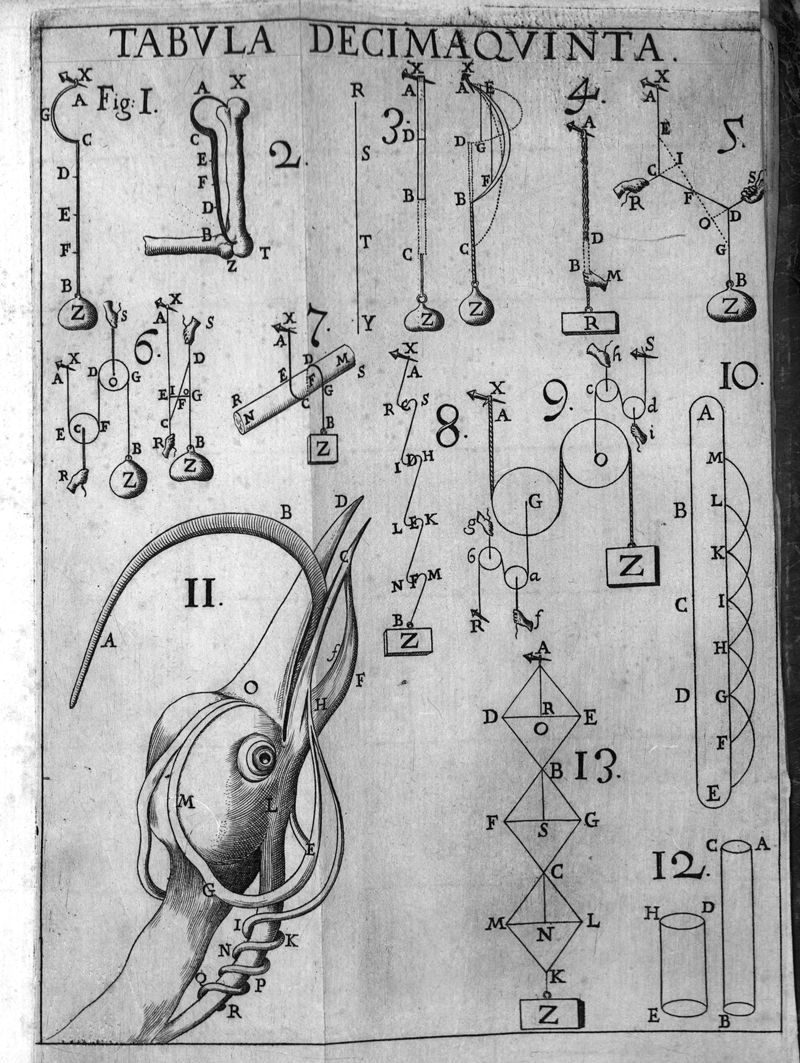 TABVLA DECIMAQVINTA.
X
A
Fig: 1.
G
C
D
E
F
B
Z
A X
C
E
F
D
B
Z T
2.
R
S
T
Y
3.
X
A
D
B
C
Z
X
A E
D G
F
B
C
Z
4.
A
D
B M
R
5.
X
A
E
C I
R
F
S
O D
G
B
Z
6.
S
X
A
D O G
E C F
R
B
Z
X
A S
D
E I O G
F
C
R B
Z
7.
X
A
D M
E F S
R G
N C
B
Z
8.
X
A
R C S
I D H
L E K
N F M
B
Z
9.
X
A
h S
c
d
i
O
G
g
6
a
R f
Z
10.
A
M
B L
K
C I
H
D G
F
E
11.
D
B
C
A
f
F
O
H
M L
E
G
I
K
N
Q P
R
12.
C A
H D
E B
13.
A
D R E
O
B
F S G
C
M N L
K
Z